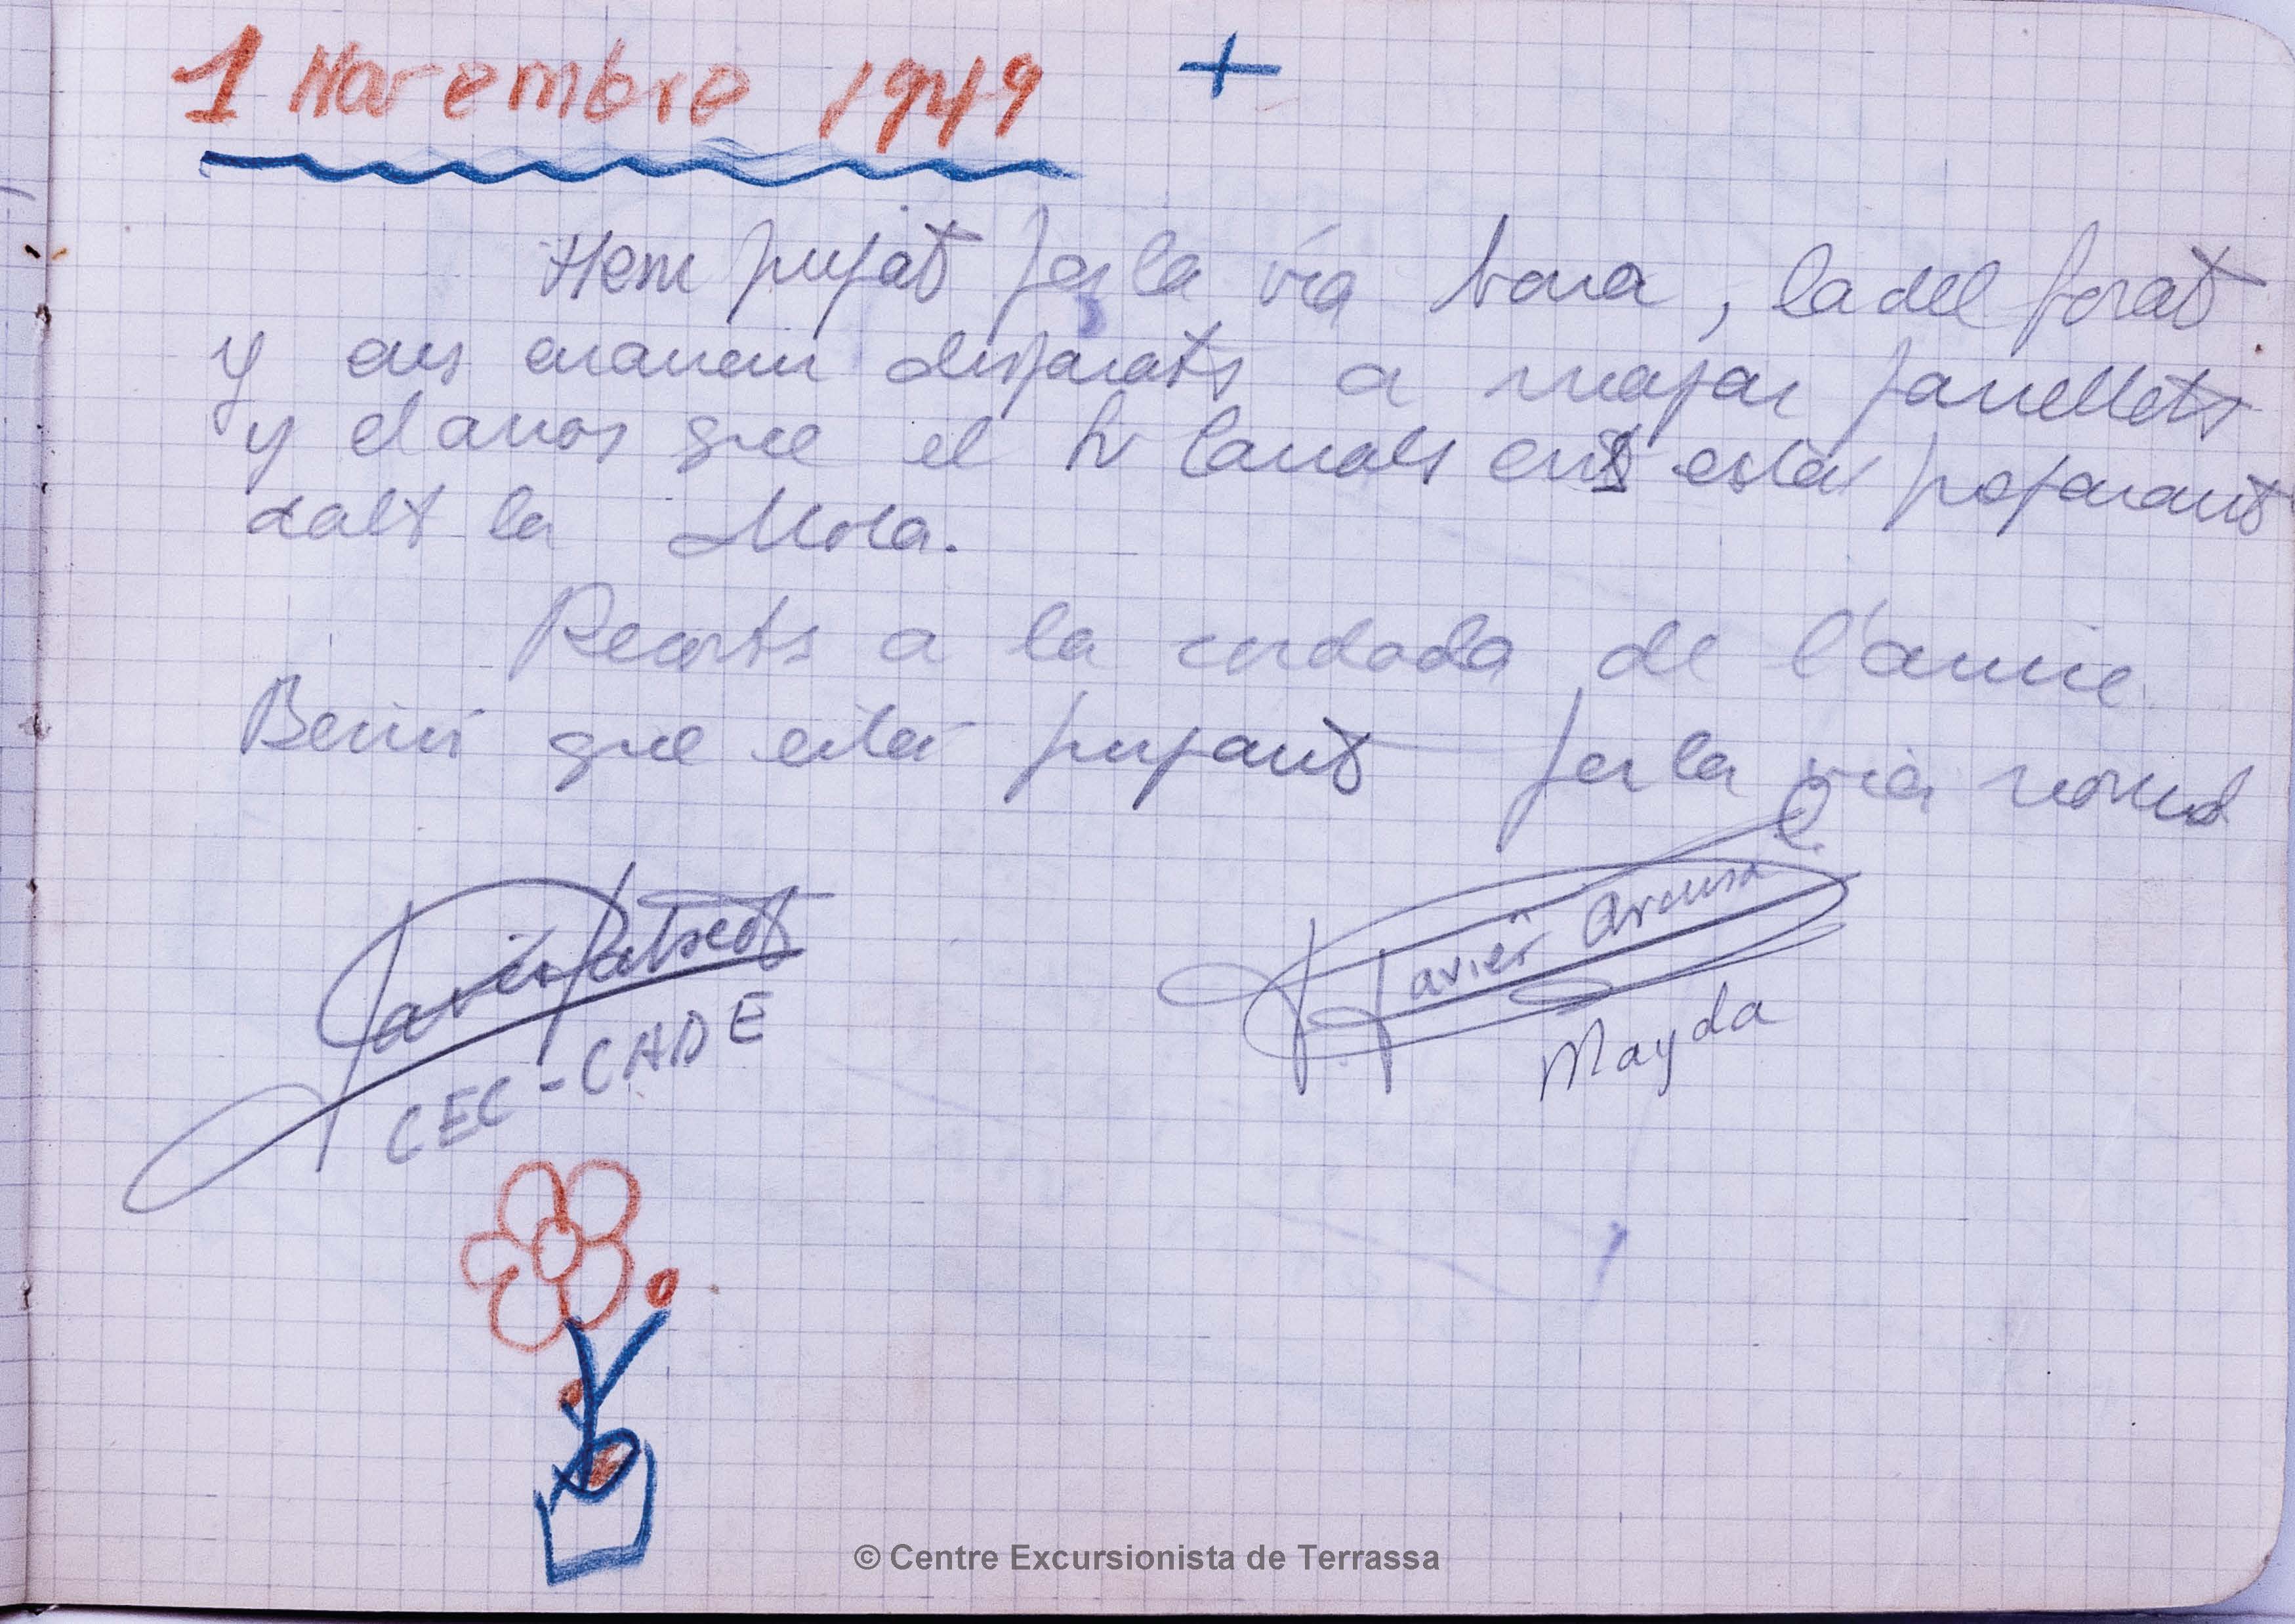 1 Novembre 1949 +
Hem pujat per la vía bona, la del forat
y ens anavem disparats a menjar panellets
y el arros que el Sr Canals ens está preparant
dalt la Mola.
Recorts a la cordada de l'amic
que está pujant per la via normal
Javier
Javier
CEC-CADE
Mayda
© Centre Excursionista de Terrassa